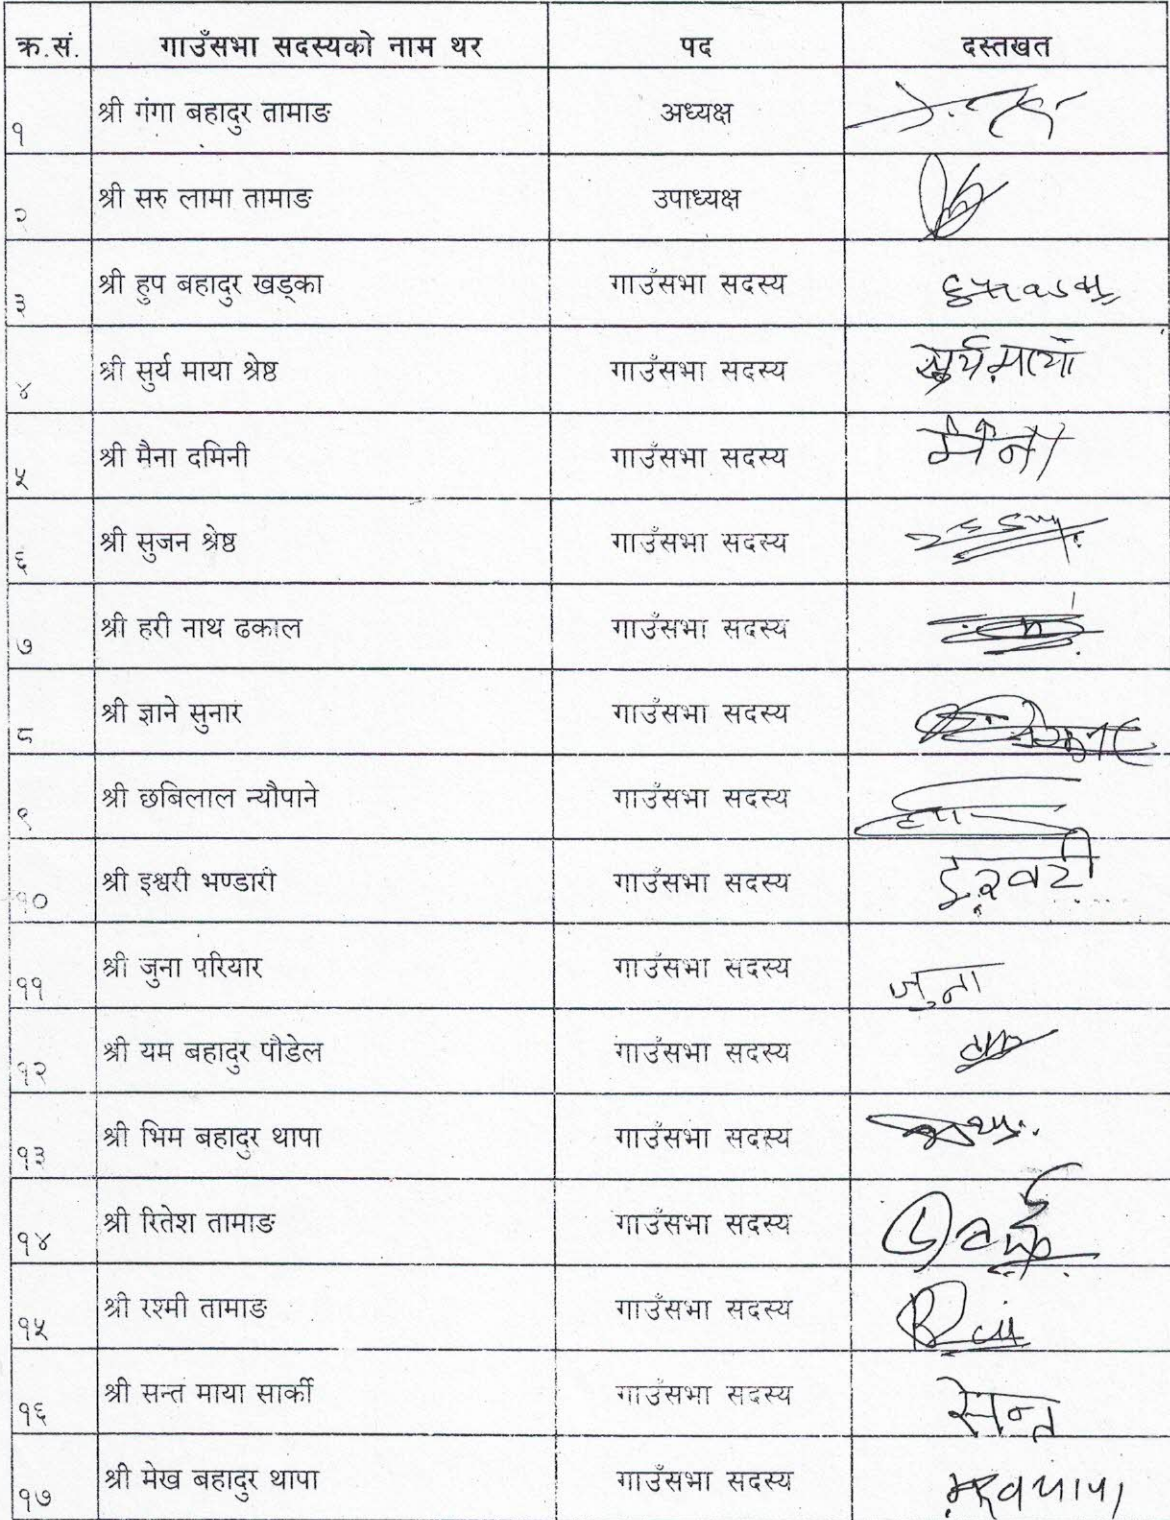 क्र.सं. गाउँसभा सदस्यको नाम थर पद दस्तखत
१ श्री गंगा बहादुर तामाङ अध्यक्ष
२ श्री सरु लामा तामाङ उपाध्यक्ष
३ श्री हुप बहादुर खड्का गाउँसभा सदस्य
४ श्री सुर्य माया श्रेष्ठ गाउँसभा सदस्य सुर्य माया
५ श्री मैना दमिनी गाउँसभा सदस्य मैना
६ श्री सुजन श्रेष्ठ गाउँसभा सदस्य
७ श्री हरी नाथ ढकाल गाउँसभा सदस्य
८ श्री ज्ञाने सुनार गाउँसभा सदस्य
९ श्री छबिलाल न्यौपाने गाउँसभा सदस्य
१० श्री इश्वरी भण्डारी गाउँसभा सदस्य
११ श्री जुना परियार गाउँसभा सदस्य जुना
१२ श्री यम बहादुर पौडेल गाउँसभा सदस्य
१३ श्री भिम बहादुर थापा गाउँसभा सदस्य
१४ श्री रितेश तामाङ गाउँसभा सदस्य
१५ श्री रश्मी तामाङ गाउँसभा सदस्य
१६ श्री सन्त माया सार्की गाउँसभा सदस्य सन्त
१७ श्री मेख बहादुर थापा गाउँसभा सदस्य